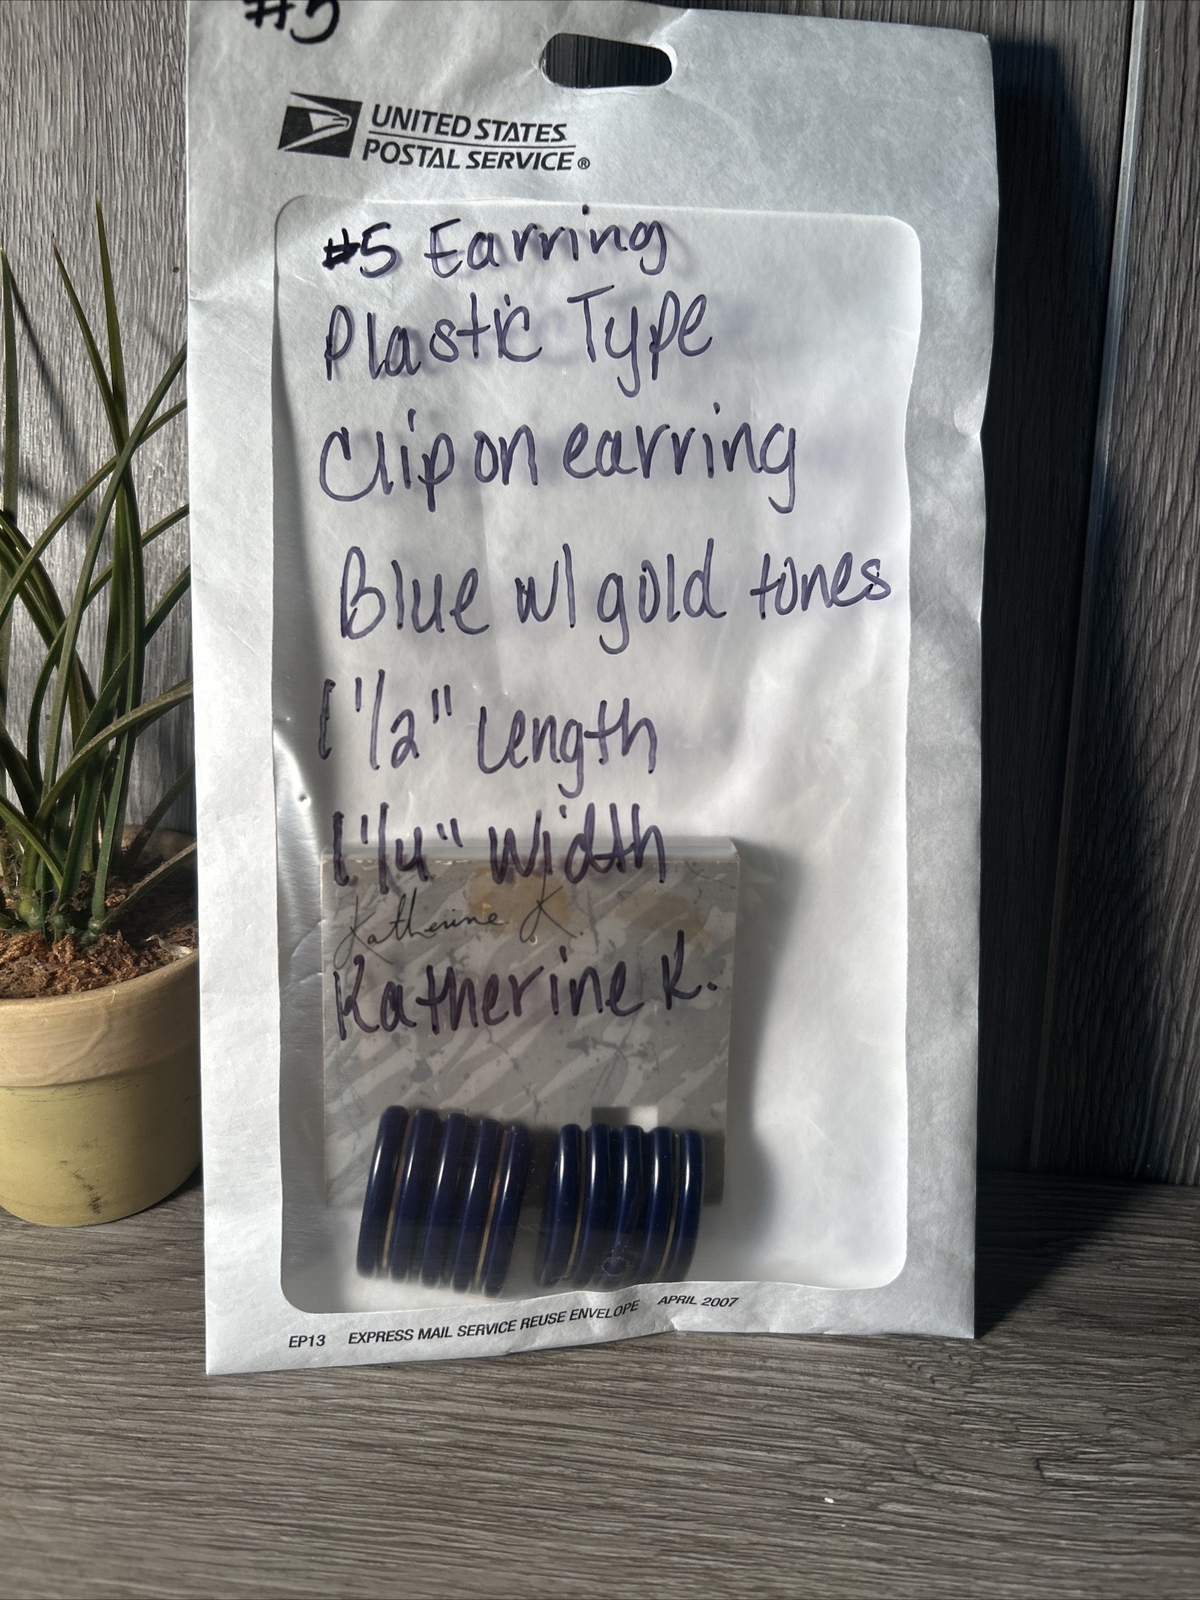 #5
UNITED STATES
POSTAL SERVICE®
#5 Earring
Plastic Type
Clip on earring
Blue w/ gold tones
1 1/2" Length
1 1/4" Width
Katherine K.
Katherine K.
EP13 EXPRESS MAIL SERVICE REUSE ENVELOPE APRIL 2007